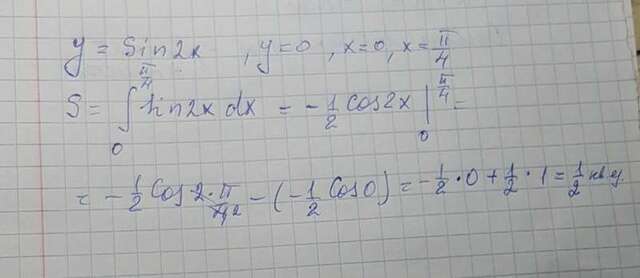 y = sin2x , y=0 , x=0, x=π/4
S = ∫₀^(π/4) sin2x dx = -1/2 cos2x |₀^(π/4) =
= -1/2 cos 2·π/4₂ - (-1/2 cos0) = -1/2·0+1/2·1=1/2 кв.ед